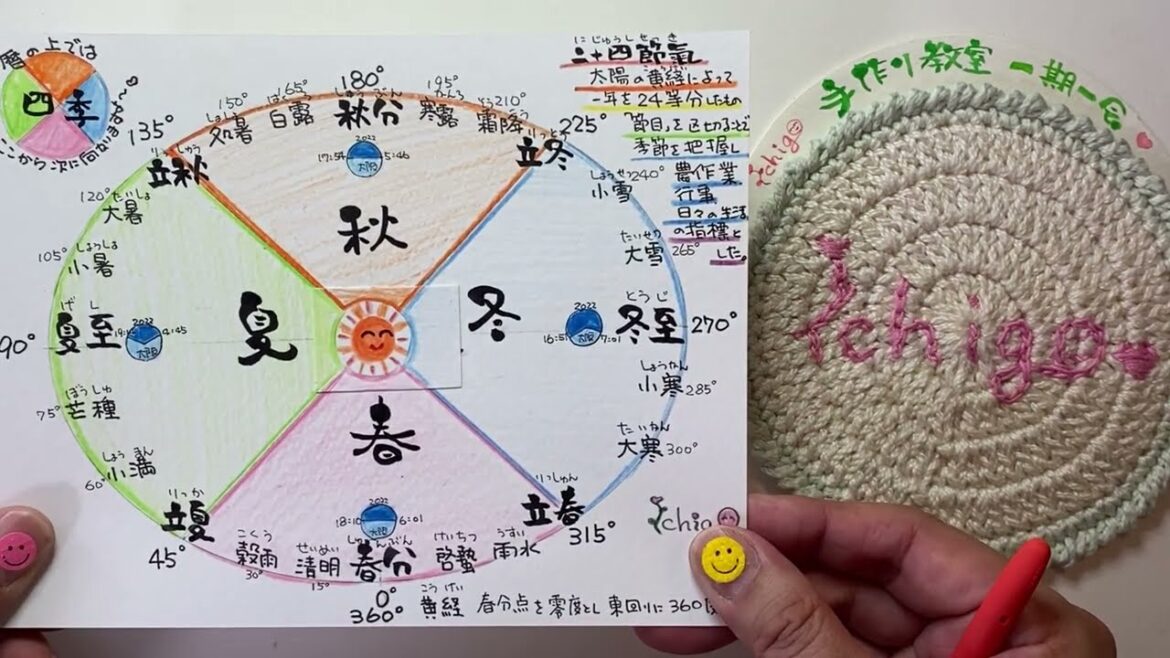 暦の上では
四季
ここから次に向かはるか〜
二十四節氣
にじゅうしせっき
太陽の黄経によって
一年を24等分したもの
節目を区切ることで
季節を把握し
農作業
行事
日々の生活
の指標と
した。
手作り教室 一期一会
Ichigo
Ichigo
180°
しゅうぶん
秋分
はくろ 165°
白露
150° しょしょ
処暑
135°
りっしゅう
立秋
195° かんろ
寒露
そう 210°
霜降
225°
りっとう
立冬
2022
17:54 太陽 5:46
秋
120° たいしょ
大暑
105° しょうしょ
小暑
90°
げし
夏至
2022
太陽 4:45
夏
75° ぼうしゅ
芒種
60° しょうまん
小満
45°
りっか
立夏
しょうせつ 240°
小雪
たいせつ
大雪 265°
冬
2022
16:51 太陽 7:01
とうじ
冬至 270°
しょうかん
小寒 285°
だいかん
大寒 300°
りっしゅん
立春
315°
春
2022
18:10 太陽 6:01
こくう
穀雨
30°
せいめい
清明
15°
しゅんぶん
春分
0°
360°
けいちつ
啓蟄
うすい
雨水
Ichigo
こうけい
黄経 春分点を零度とし東回りに360度